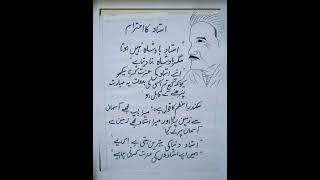 استاد کا احترام
"استاد بادشاہ نہیں ہوتا
مگر بادشاہ بنا دیتا ہے"
"اپنے استاد کی عزت کرنا سیکھو
کیونکہ آج تم اسی کی بدولت یہ عبارت
پڑھنے کے قابل ہو"
سکندر اعظم کا قول ہے: "میرا باپ مجھے آسمان
سے زمین پر لایا اور میرا استاد مجھے زمین سے
آسمان پر لے گیا"
"استاد دنیا کی بہترین ہستی ہے اس لیے
ہمیں اپنے استادوں کی عزت کرنی چاہیے"